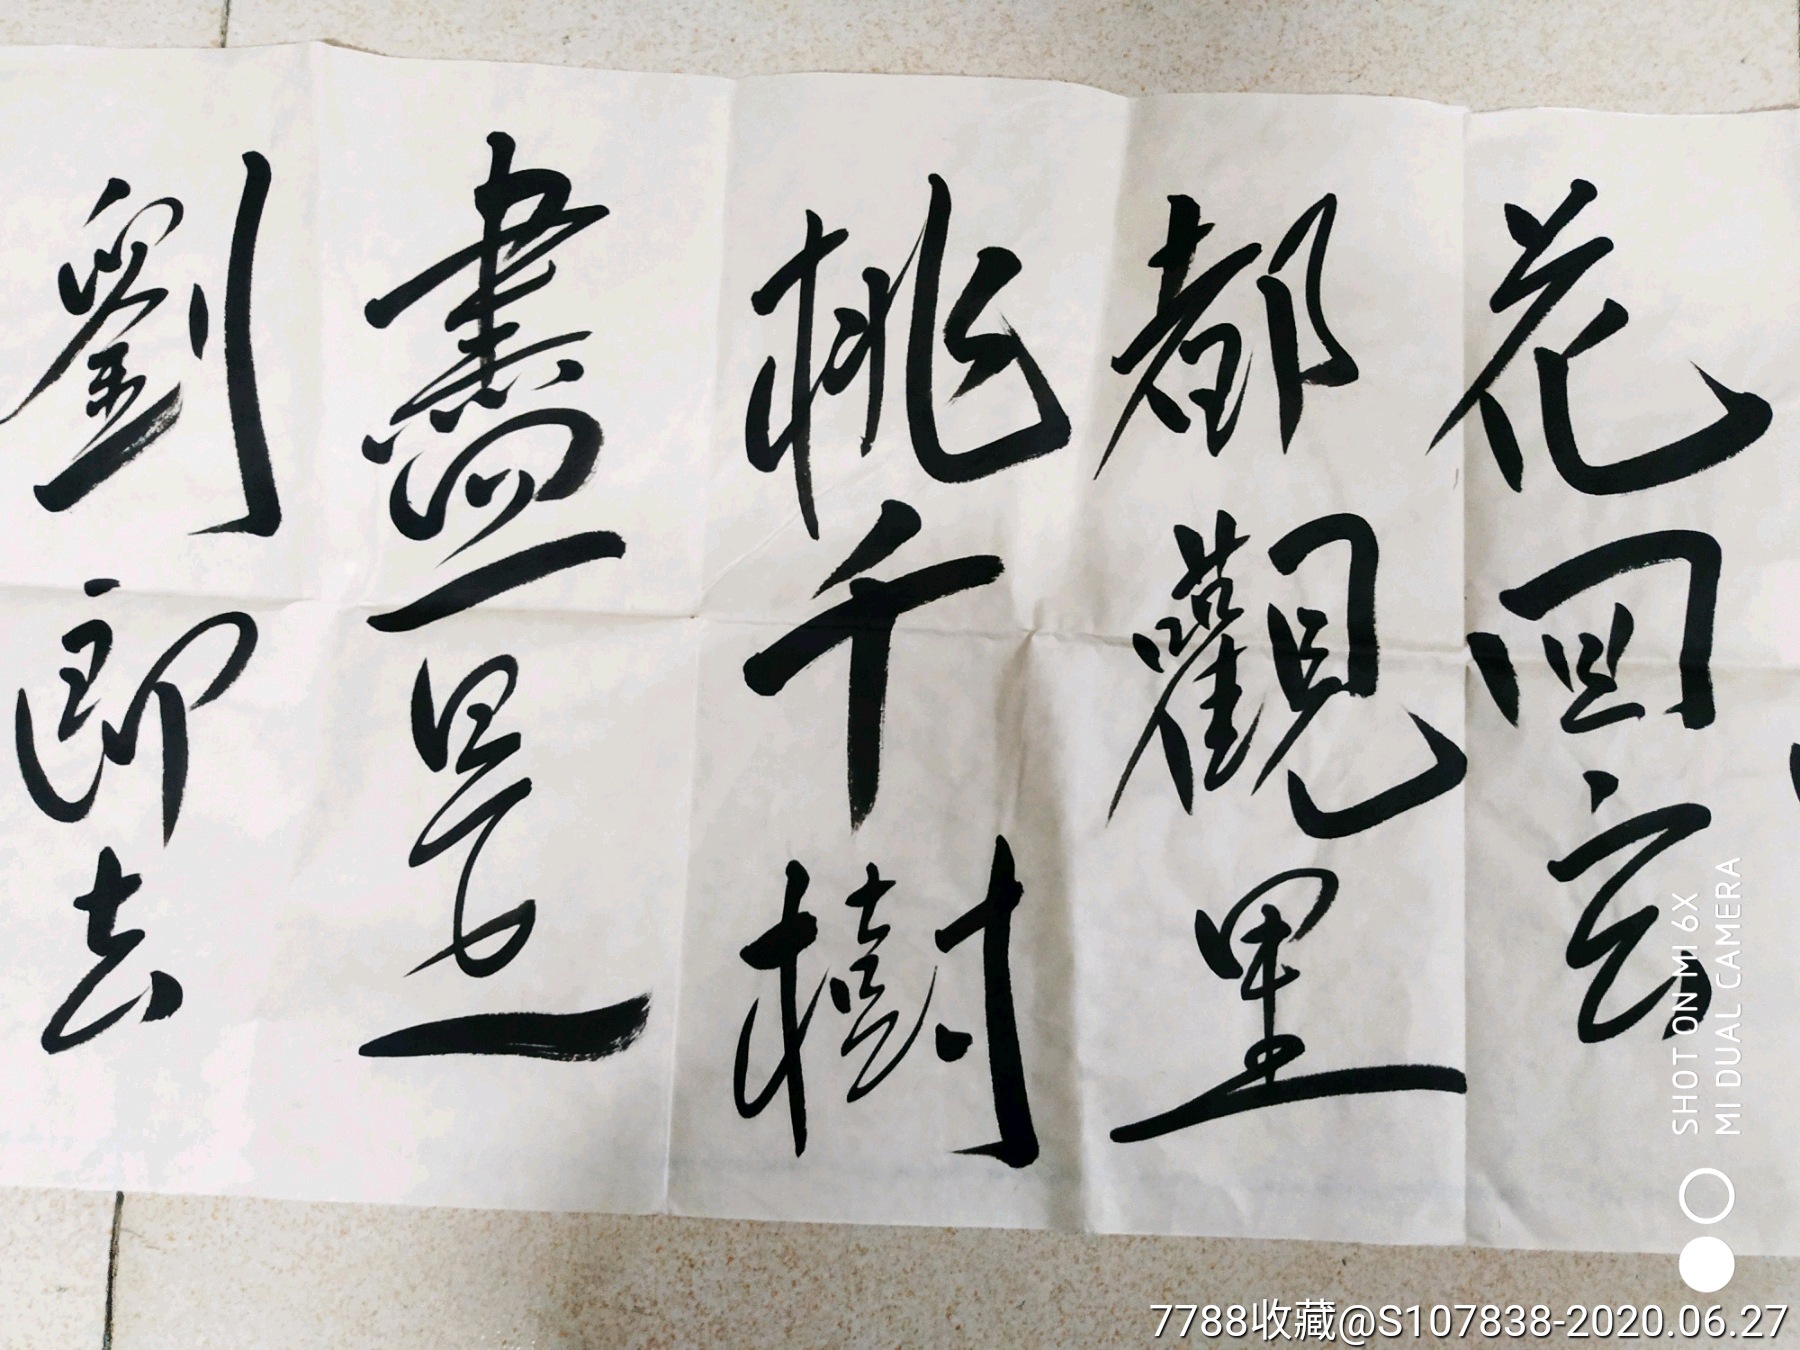 花回玄
都觀里
桃千樹
盡是
劉郎去
SHOT ON MI 6X
MI DUAL CAMERA
7788收藏@S107838-2020.06.27